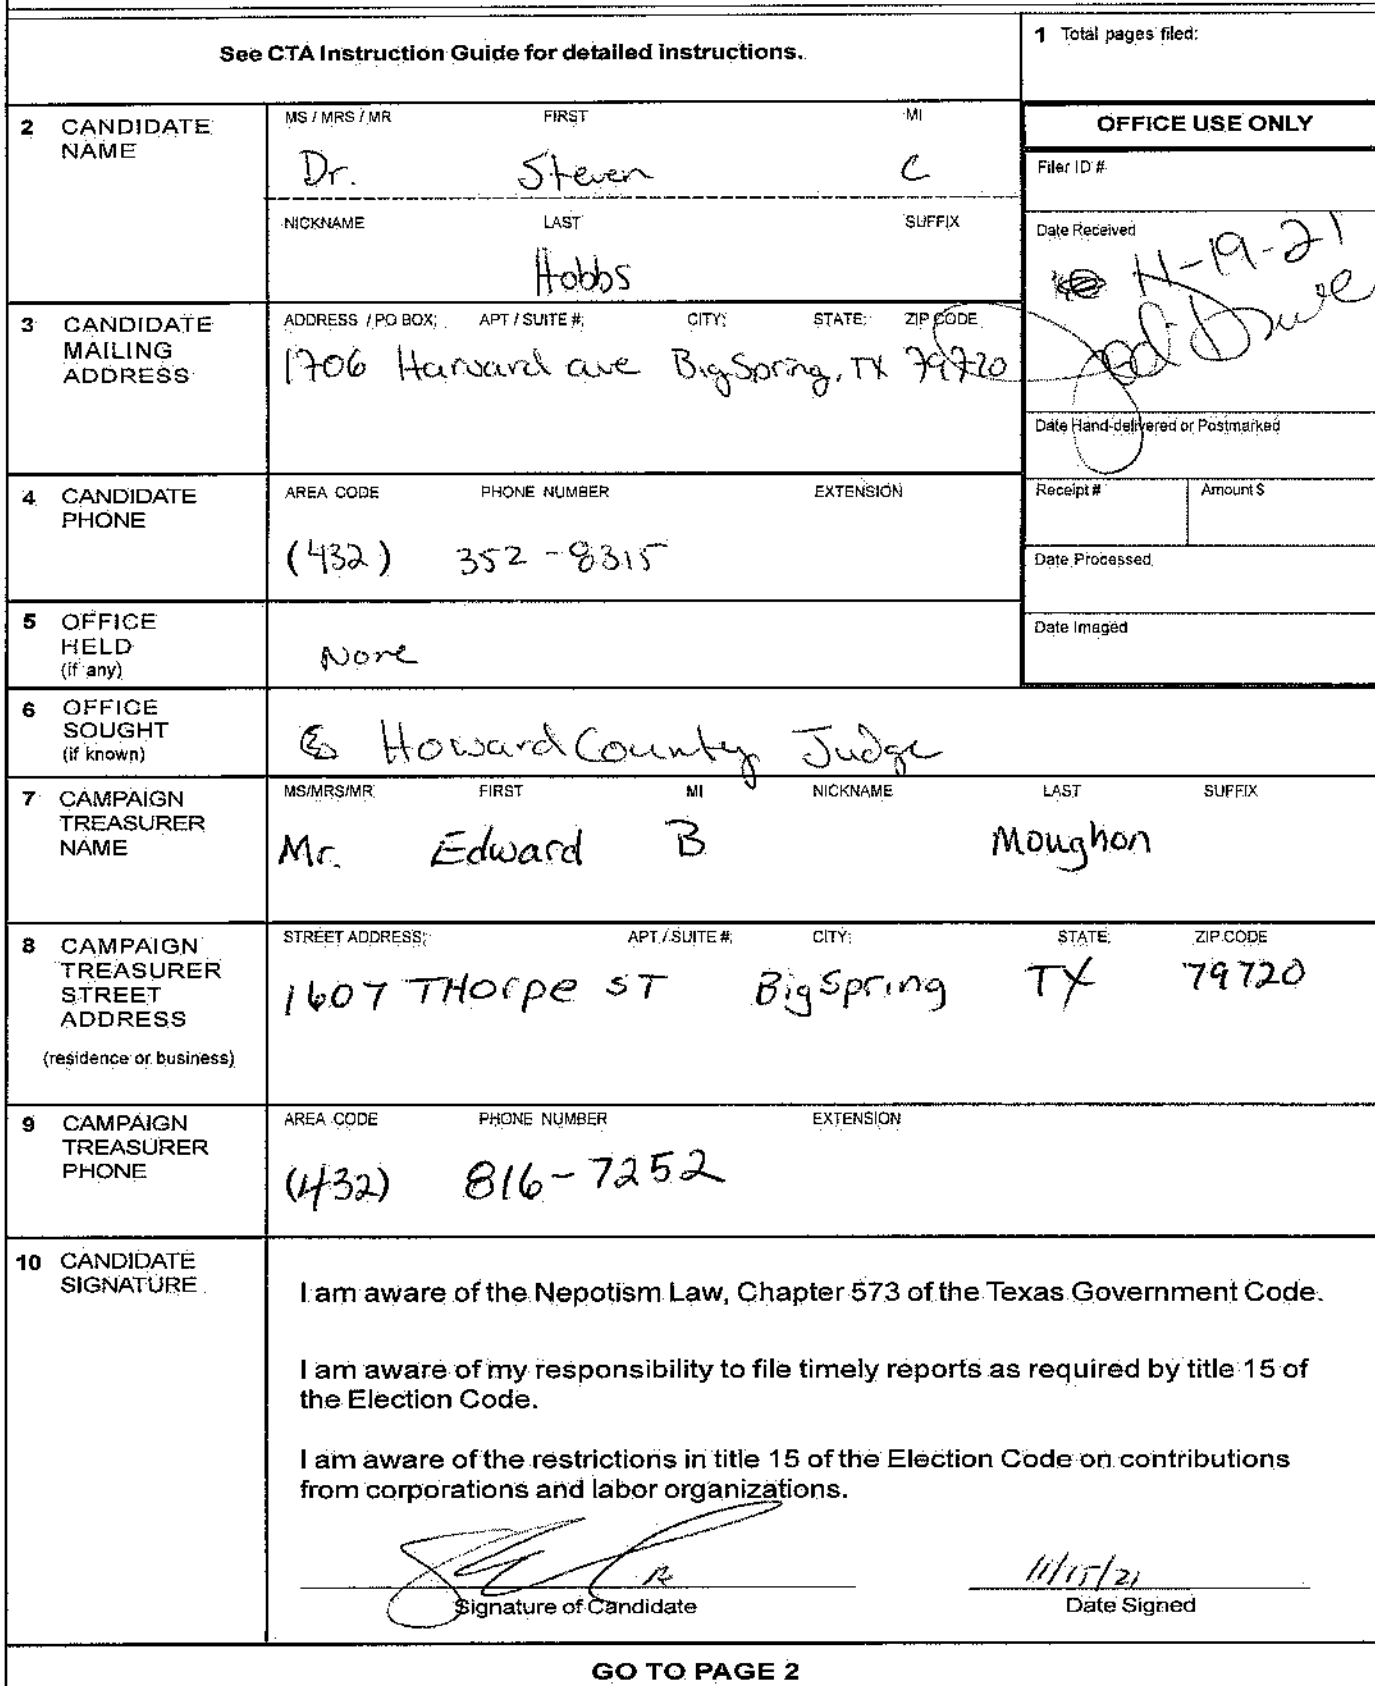 See CTA Instruction Guide for detailed instructions.
1 Total pages filed:
2 CANDIDATE NAME
MS / MRS / MR FIRST MI
Dr. Steven C
NICKNAME LAST SUFFIX
Hobbs
OFFICE USE ONLY
Filer ID #
Date Received
11-19-21
Date Hand-delivered or Postmarked
Receipt # Amount $
Date Processed
Date Imaged
3 CANDIDATE MAILING ADDRESS
ADDRESS / PO BOX; APT / SUITE #; CITY; STATE; ZIP CODE
1706 Harvard ave Big Spring, TX 79720
4 CANDIDATE PHONE
AREA CODE PHONE NUMBER EXTENSION
(432) 352-8315
5 OFFICE HELD (if any)
None
6 OFFICE SOUGHT (if known)
Howard County Judge
7 CAMPAIGN TREASURER NAME
MS/MRS/MR FIRST MI NICKNAME LAST SUFFIX
Mr. Edward B Moughon
8 CAMPAIGN TREASURER STREET ADDRESS
(residence or business)
STREET ADDRESS; APT / SUITE #; CITY; STATE; ZIP CODE
1607 THorpe ST Big Spring TX 79720
9 CAMPAIGN TREASURER PHONE
AREA CODE PHONE NUMBER EXTENSION
(432) 816-7252
10 CANDIDATE SIGNATURE
I am aware of the Nepotism Law, Chapter 573 of the Texas Government Code.
I am aware of my responsibility to file timely reports as required by title 15 of
the Election Code.
I am aware of the restrictions in title 15 of the Election Code on contributions
from corporations and labor organizations.
11/15/21
Signature of Candidate Date Signed
GO TO PAGE 2